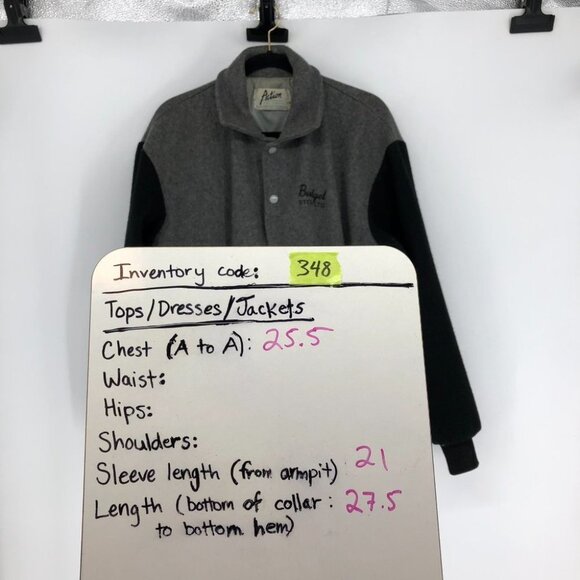 Action
Budget
Inventory code: 348
Tops/Dresses/Jackets
Chest (A to A): 25.5
Waist:
Hips:
Shoulders:
Sleeve length (from armpit) 21
Length (bottom of collar : 27.5
to bottom hem)